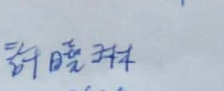 許曉琳